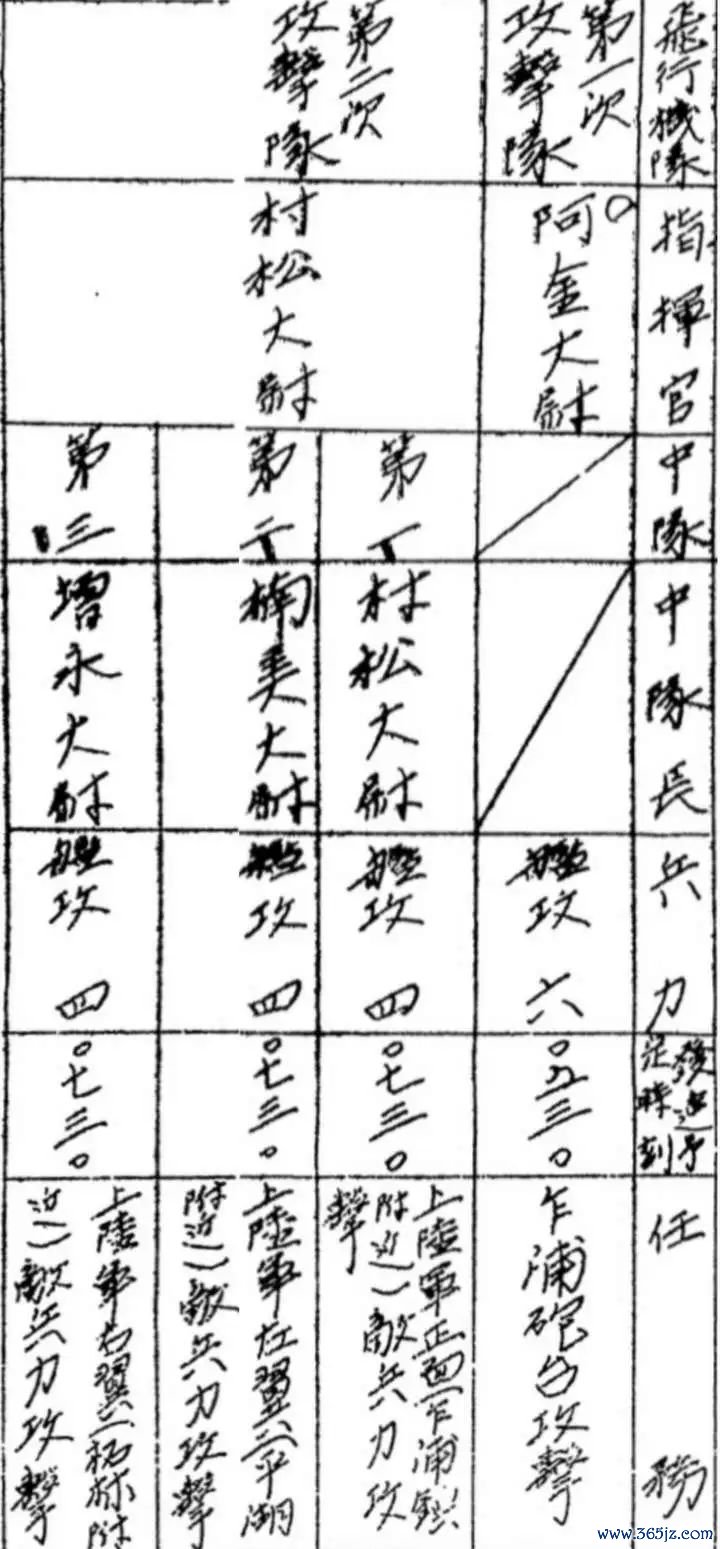 飛行機隊
指揮官
中隊
中隊長
兵力
發進予
定時刻
任務
第一次
攻擊隊
阿金大尉
艦攻 六
〇五三〇
乍浦砲台攻擊
第二次
攻擊隊
村松大尉
第一
村松大尉
艦攻 四
〇七三〇
上陸軍正面乍浦鎮
附近ノ敵兵力攻
擊
第二
楠美大尉
艦攻 四
〇七三〇
上陸軍左翼平湖
附近ノ敵兵力攻擊
第三
增永大尉
艦攻 四
〇七三〇
上陸軍右翼柘林附
近ノ敵兵力攻擊
www.365jz.com